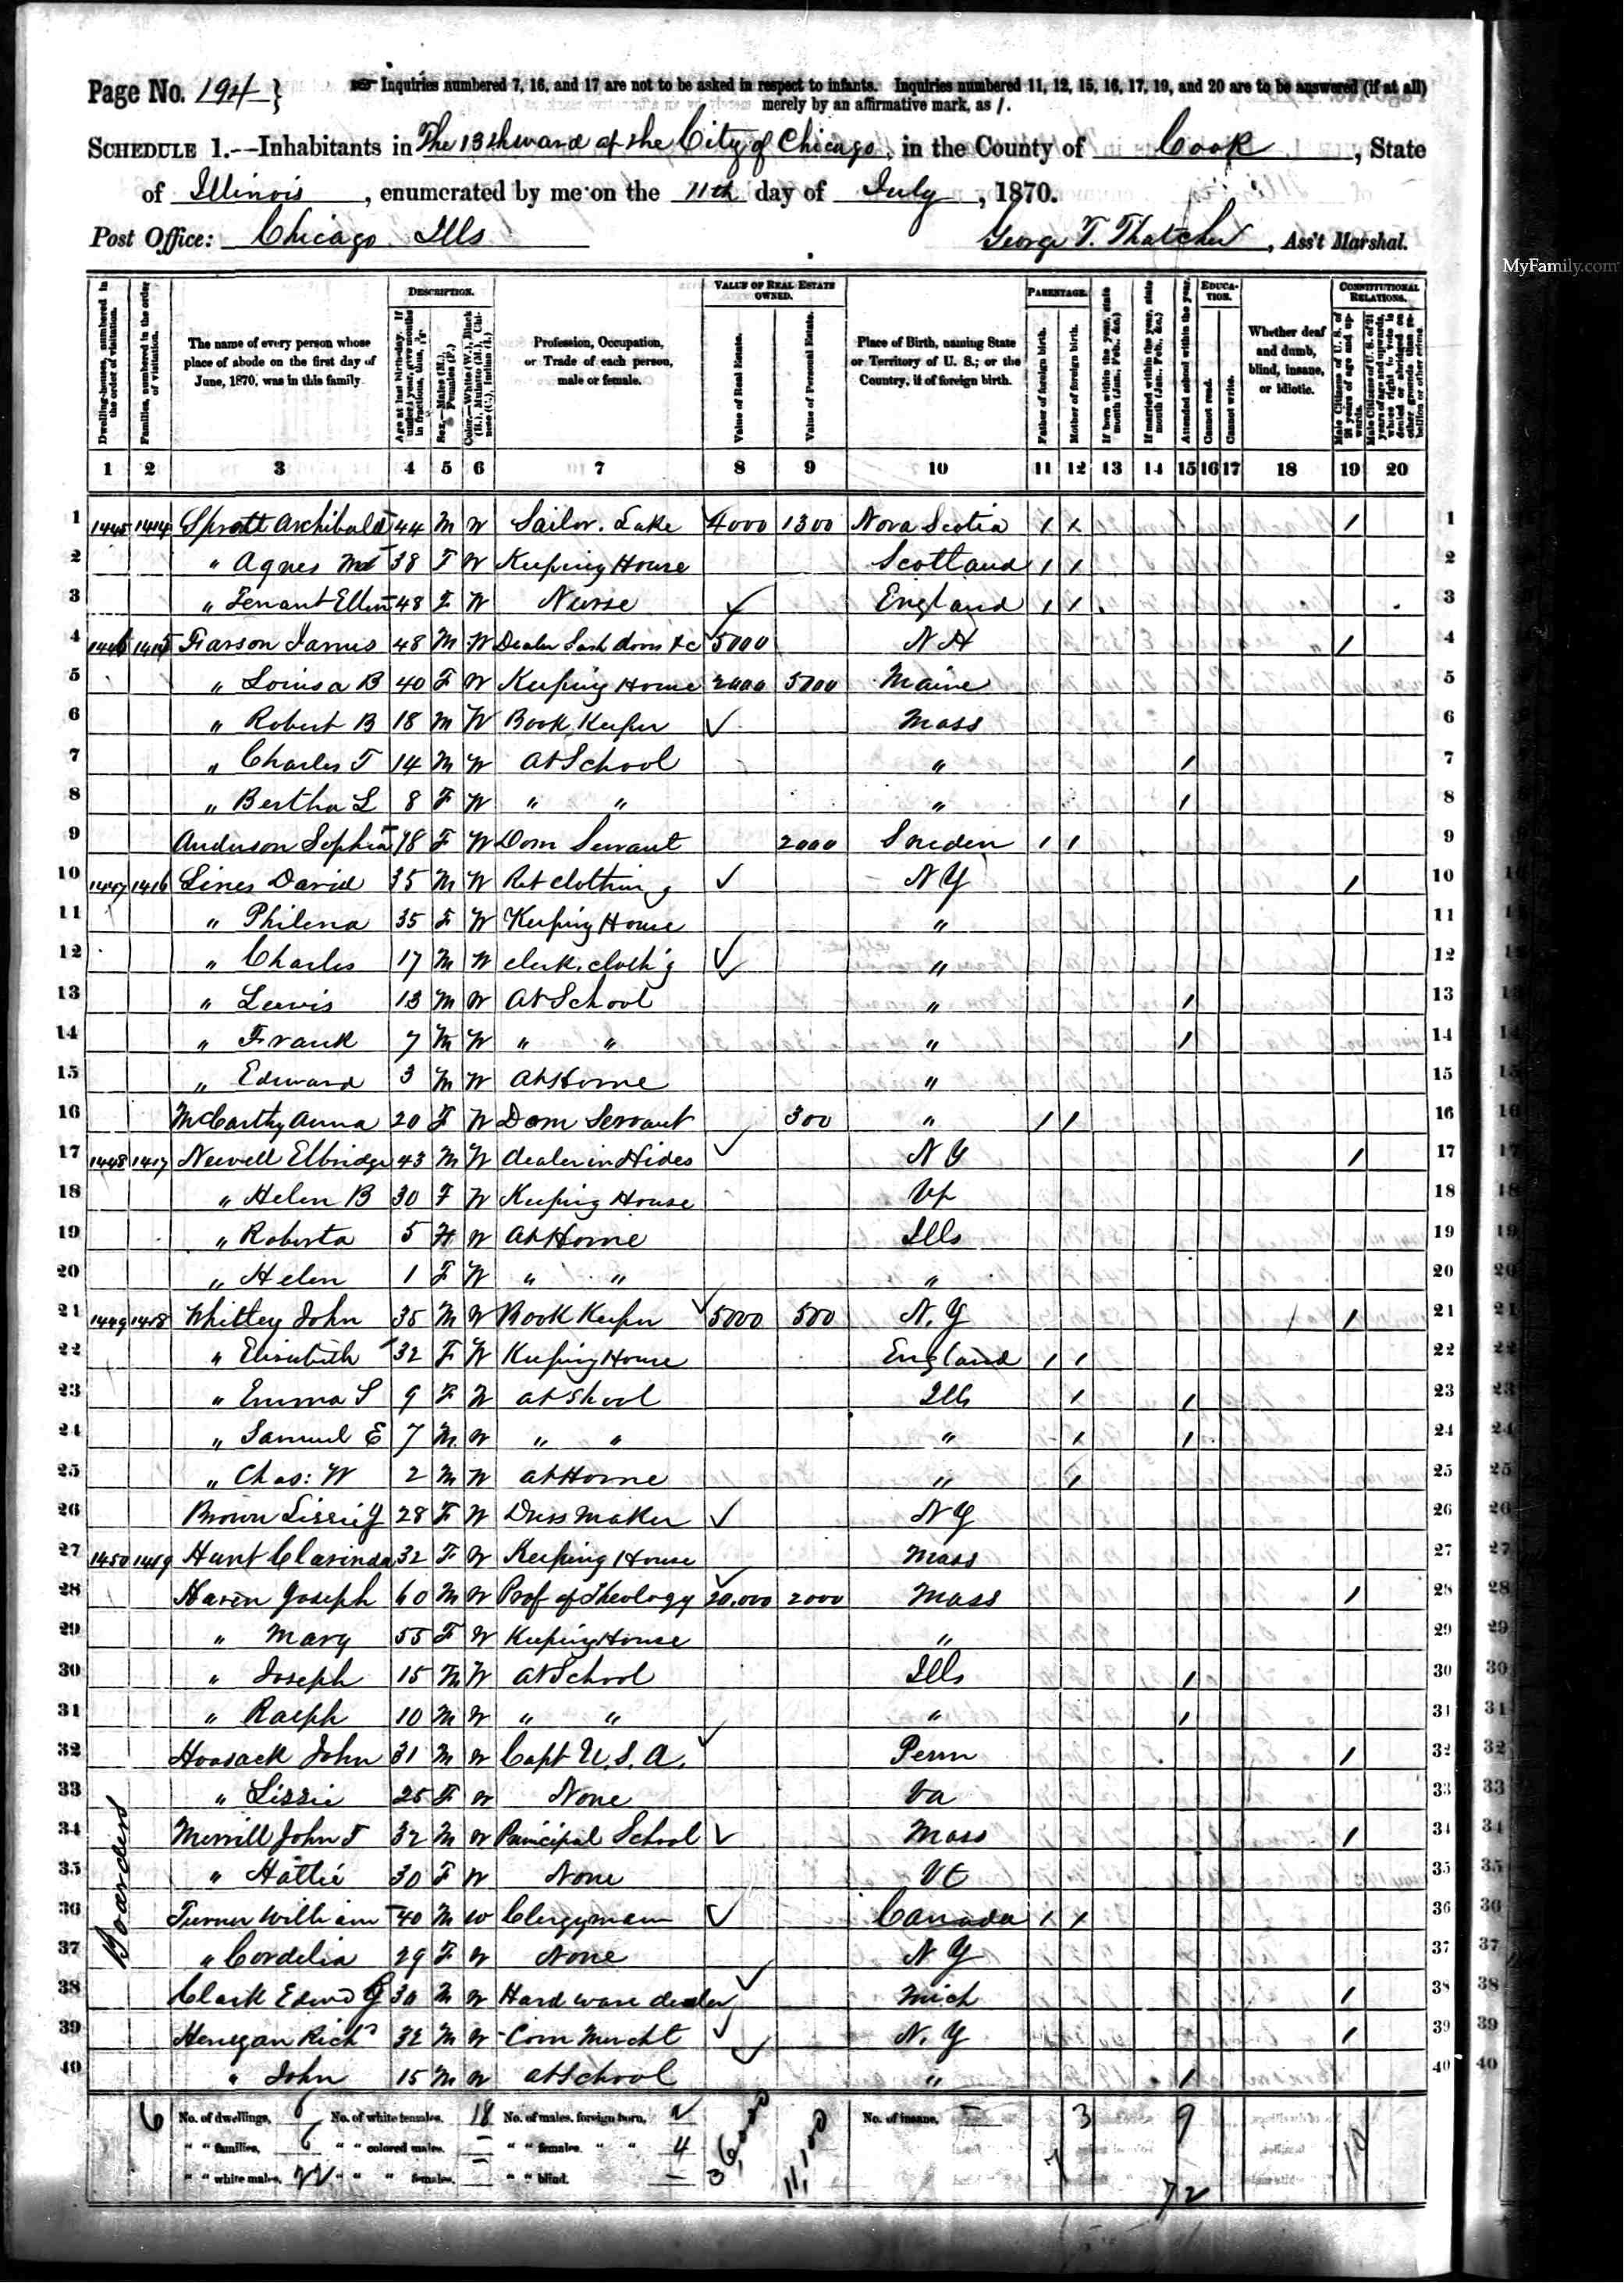 Page No. 194 } Inquiries numbered 7, 16, and 17 are not to be asked in respect to infants. Inquiries numbered 11, 12, 15, 16, 17, 19, and 20 are to be answered (if at all)
merely by an affirmative mark, as /.
SCHEDULE 1.—Inhabitants in The 13th ward of the City of Chicago, in the County of Cook, State
of Illinois, enumerated by me on the 11th day of July, 1870.
Post Office: Chicago Ills George T. Thatcher, Ass't Marshal.
MyFamily.com
DESCRIPTION. VALUE OF REAL ESTATE OWNED. PARENTAGE. EDUCATION. CONSTITUTIONAL RELATIONS.
Dwelling-houses, numbered in the order of visitation.
Families, numbered in the order of visitation.
The name of every person whose place of abode on the first day of June, 1870, was in this family.
Profession, Occupation, or Trade of each person, male or female.
Value of Real Estate.
Value of Personal Estate.
Place of Birth, naming State or Territory of U. S.; or the Country, if of foreign birth.
Father of foreign birth.
Mother of foreign birth.
If born within the year, state month (Jan., Feb., &c.)
If married within the year, state month (Jan., Feb., &c.)
Attended school within the year.
Cannot read.
Cannot write.
Whether deaf and dumb, blind, insane, or idiotic.
1 2 3 4 5 6 7 8 9 10 11 12 13 14 15 16 17 18 19 20
1 1445 1414 Spratt Archibald 44 M W Sailor. Lake 4000 1300 Nova Scotia / / / 1
2 " Agnes 38 F W Keeping House Scotland / / 2
3 " Tenant Ellen 48 F W Nurse England / / 3
4 1446 1415 James 48 M W Dealer Sash doors &c 5000 N H / 4
5 " Louisa B 40 F W Keeping House 2000 5000 Maine 5
6 " Robert B 18 M W Book Keeper Mass 6
7 " Charles T 14 M W At School " / 7
8 " Bertha L 8 F W " " " / 8
9 Anderson Sophia 18 F W Dom Servant 2000 Sweden / / 9
10 1447 1416 Lines David 35 M W Ret clothing N Y / 10
11 " Philena 35 F W Keeping House " 11
12 " Charles 17 M W clerk cloth'g " 12
13 " Lewis 13 M W At School " / 13
14 " Frank 7 M W " " " / 14
15 " Edward 3 M W At Home " 15
16 McCarthy Anna 20 F W Dom Servant 300 " / / 16
17 1448 1417 Newell Elbridge 43 M W dealer in Hides N Y / 17
18 " Helen B 30 F W Keeping House Vt 18
19 " Roberta 5 F W At Home Ills 19
20 " Helen 1 F W " " " 20
21 1449 1418 Whitley John 35 M W Book Keeper 5000 500 N. Y / 21
22 " Elisabeth 32 F W Keeping House England / / 22
23 " Emma S 9 F W at Shool Ills / / 23
24 " Samuel E 7 M W " " " / / 24
25 " Chas: W 2 M W at Home " / 25
26 Brown Lizzie J 28 F W Dress Maker N Y 26
27 1450 1419 Hunt Clarinda 32 F W Keeping House Mass 27
28 Haven Joseph 60 M W Prof of Theology 20.000 2000 Mass / 28
29 " Mary 55 F W Keeping House " 29
30 " Joseph 15 M W At School Ills / 30
31 " Ralph 10 M W " " " / 31
32 John 31 M W Capt U. S. A. Penn / 32
33 " Lizzie 25 F W None Va 33
Boarders
34 Merrill John T 32 M W Principal School Mass / 34
35 " Hattie 30 F W None Vt 35
36 Turner William 40 M W Clergyman Canada / / 36
37 " Cordelia 29 F W None N Y 37
38 Clark Edwd G 30 M W Hard ware dealer Mich / 38
39 Henegan Richd 32 M W Com Mercht N. Y / 39
40 " John 15 M W at School " / 40
6 No. of dwellings, 6 No. of white females, 18 No. of males, foreign born, 2 No. of insane, 3 9
" " families, 6 " " colored males, — " " females, " " 4 36,000 11,100 7 10
" " white males, 22 " " " females, — " " blind, — 72